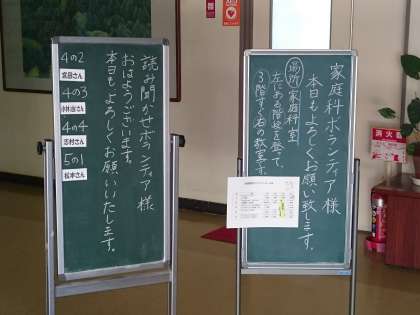 読み聞かせボランティア様
おはようございます。
本日もよろしくお願いいたします。
4の2
宮原さん
4の3
4の4
志村さん
5の1
松本さん
家庭科ボランティア様
本日もよろしくお願い致します。
場所 家庭科室
左にある階段を登って、
3階すぐ右の教室です。
消火器